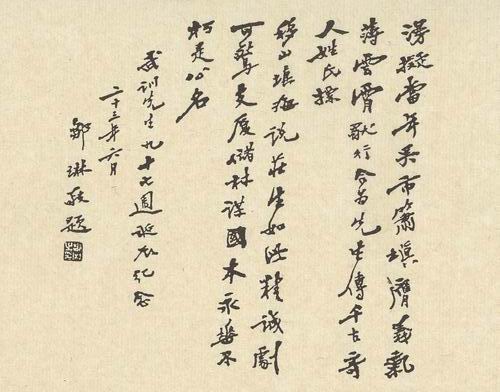 漫擬當年吳市簫填膺義氣
薄雲霄獨行合為先生傳千古奇
人姓氏標
移山填海說莊生如此精誠劇
可驚支廈儲材謀國本永垂不
朽是公名
武訓先生九十七週誕辰紀念
二十三年六月
鄒琳敬題